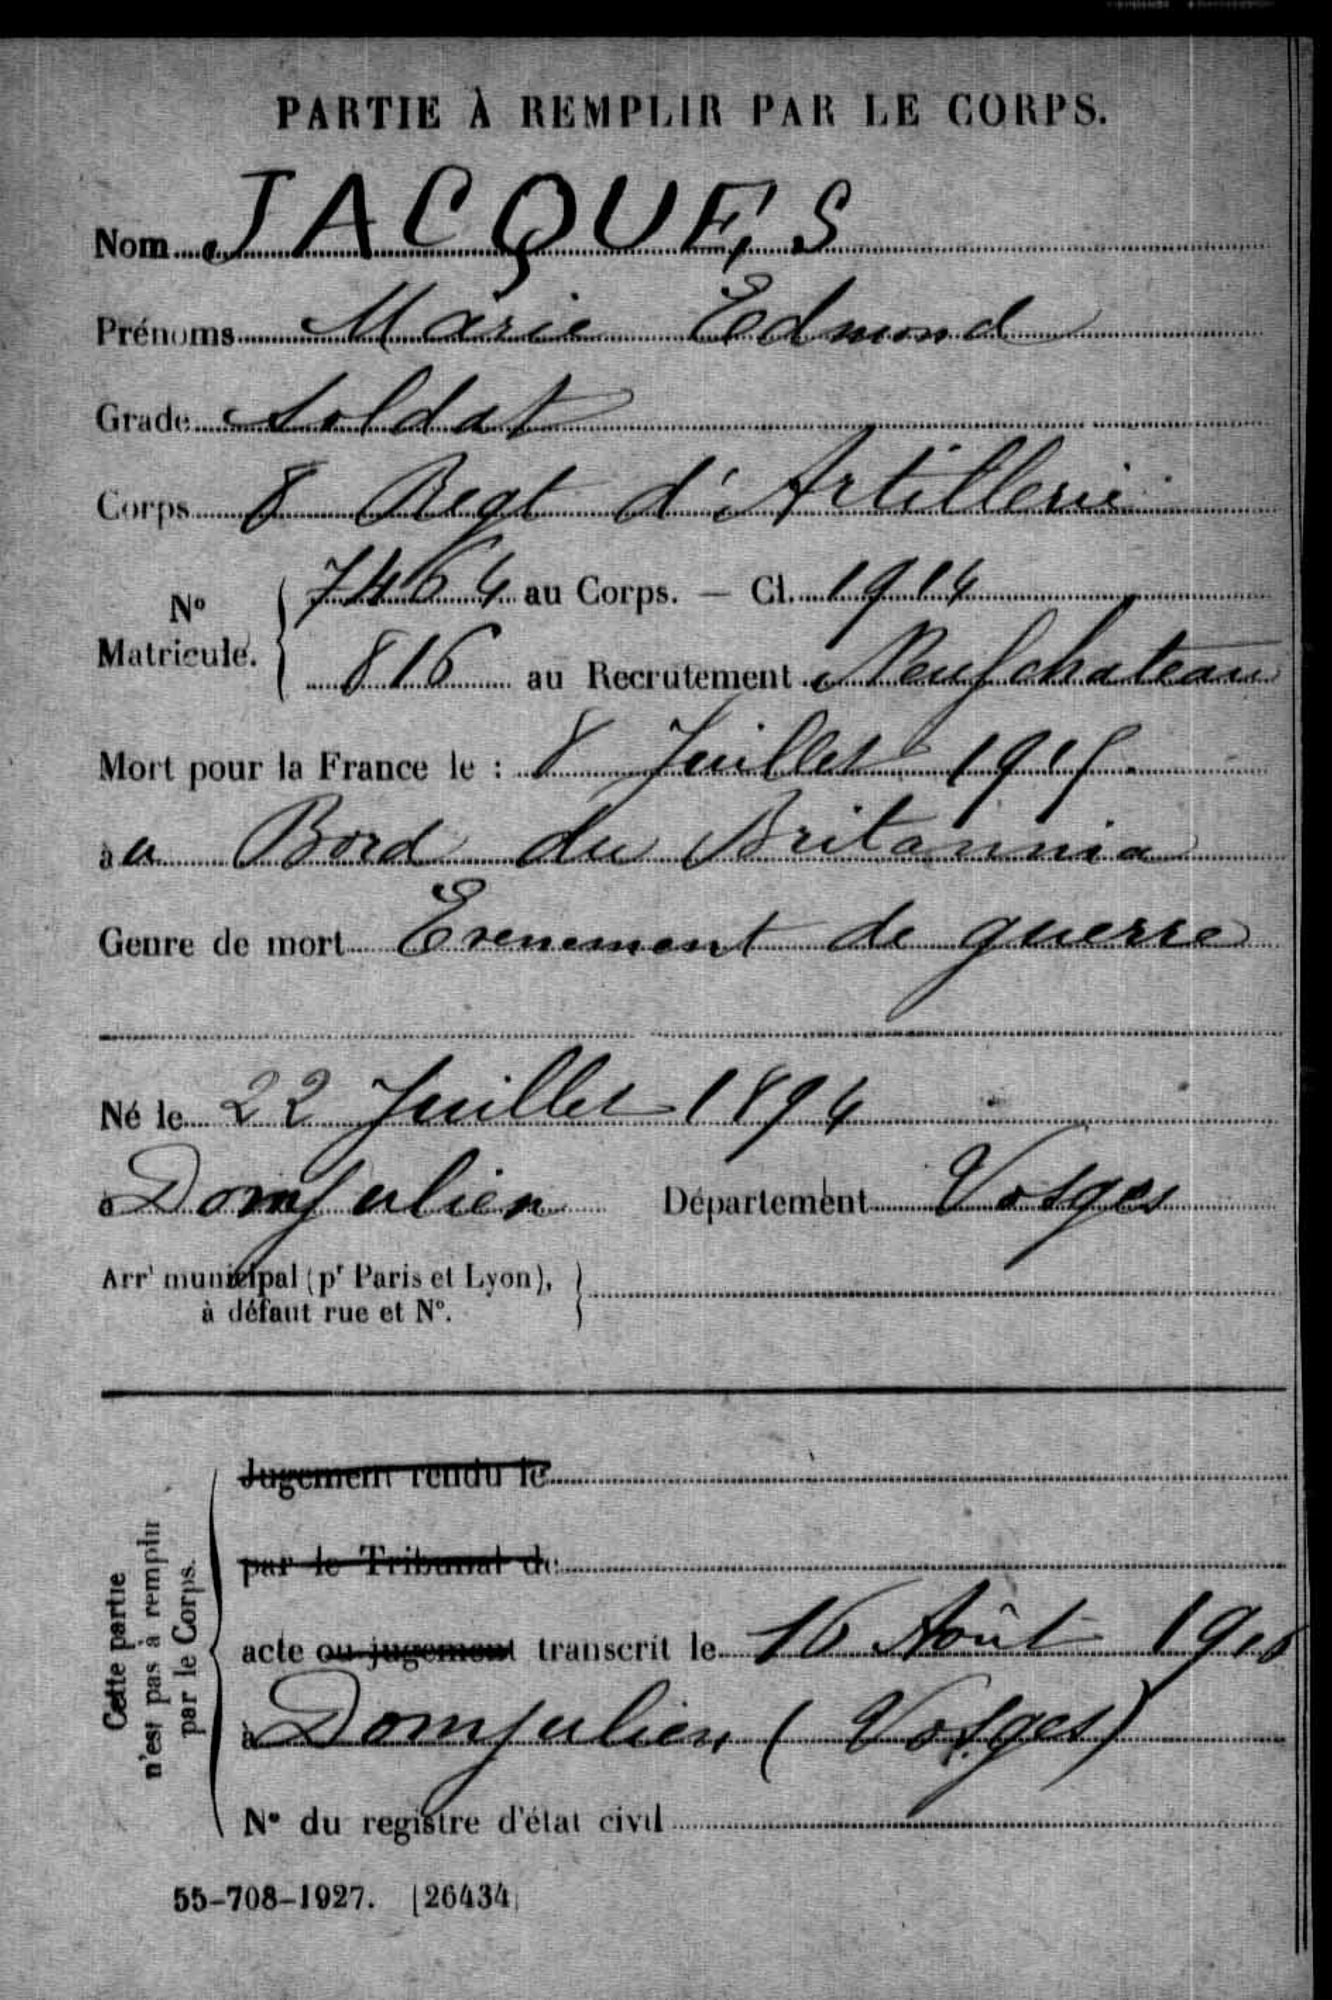 PARTIE À REMPLIR PAR LE CORPS.
Nom JACQUES
Prénoms Marie Edmond
Grade Soldat
Corps 8 Regt d'Artillerie
N° Matricule. { 7464 au Corps. — Cl. 1914
816 au Recrutement Neufchateau
Mort pour la France le : 8 Juillet 1915
à a Bord du Britannia
Genre de mort Evenement de guerre
Né le 22 Juillet 1894
à Domjulien Département Vosges
Arrt municipal (pr Paris et Lyon), }
à défaut rue et N°.
Cette partie
n'est pas à remplir
par le Corps.
Jugement rendu le
par le Tribunal de
acte ou jugement transcrit le 16 Août
à Domjulien (Vosges)
N° du registre d'état civil
55-708-1927. [26434]